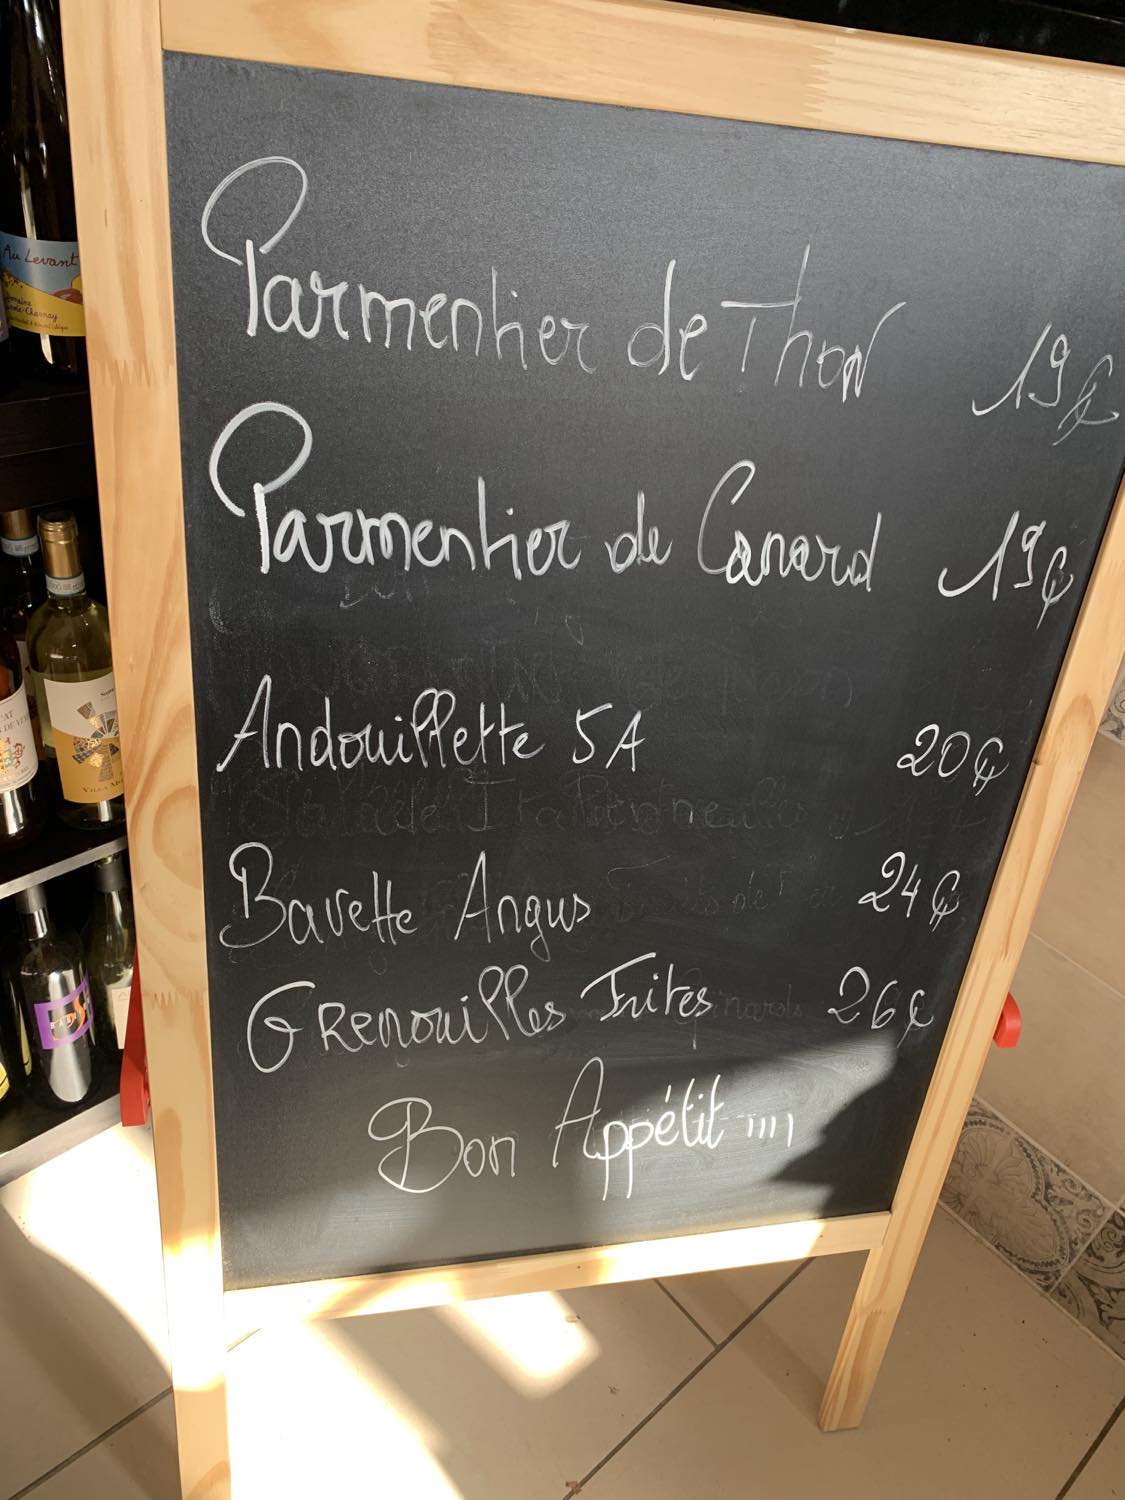 Parmentier de Thon 19€
Parmentier de Canard 19€
Andouillette 5A 20€
Bavette Angus 24€
Grenouilles Frites 26€
Bon Appétit !!!!
Au Levant